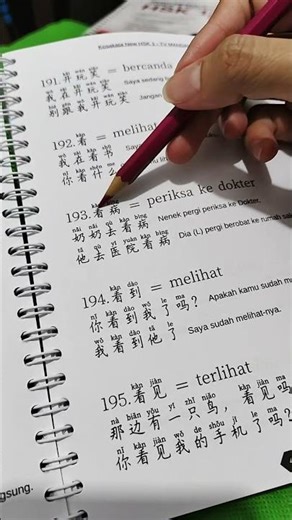 Kosakata New HSK
191. 开玩笑 = bercanda
我在开玩笑 Saya sedang
别跟我开玩笑 Jangan
192. 看 = melihat
我在看书
你看什么
193. 看病 = periksa ke dokter
nǎi nai qù kàn bìng
奶奶去看病 Nenek pergi periksa ke Dokter.
tā qù yī yuàn kàn bìng
他去医院看病 Dia (L) pergi berobat ke rumah sak
kàn dào
194. 看到 = melihat
nǐ kàn dào wǒ le ma
你看到我了吗? Apakah kamu sudah m
wǒ kàn dào tā le
我看到他了 Saya sudah melihat-nya.
kàn jiàn
195. 看见 = terlihat
nà biān yǒu yī zhī niǎo kàn jiàn ma
那边有一只鸟，看见吗
nǐ kàn jiàn wǒ de shǒu jī le ma
你看见我的手机了吗?
ngsung.